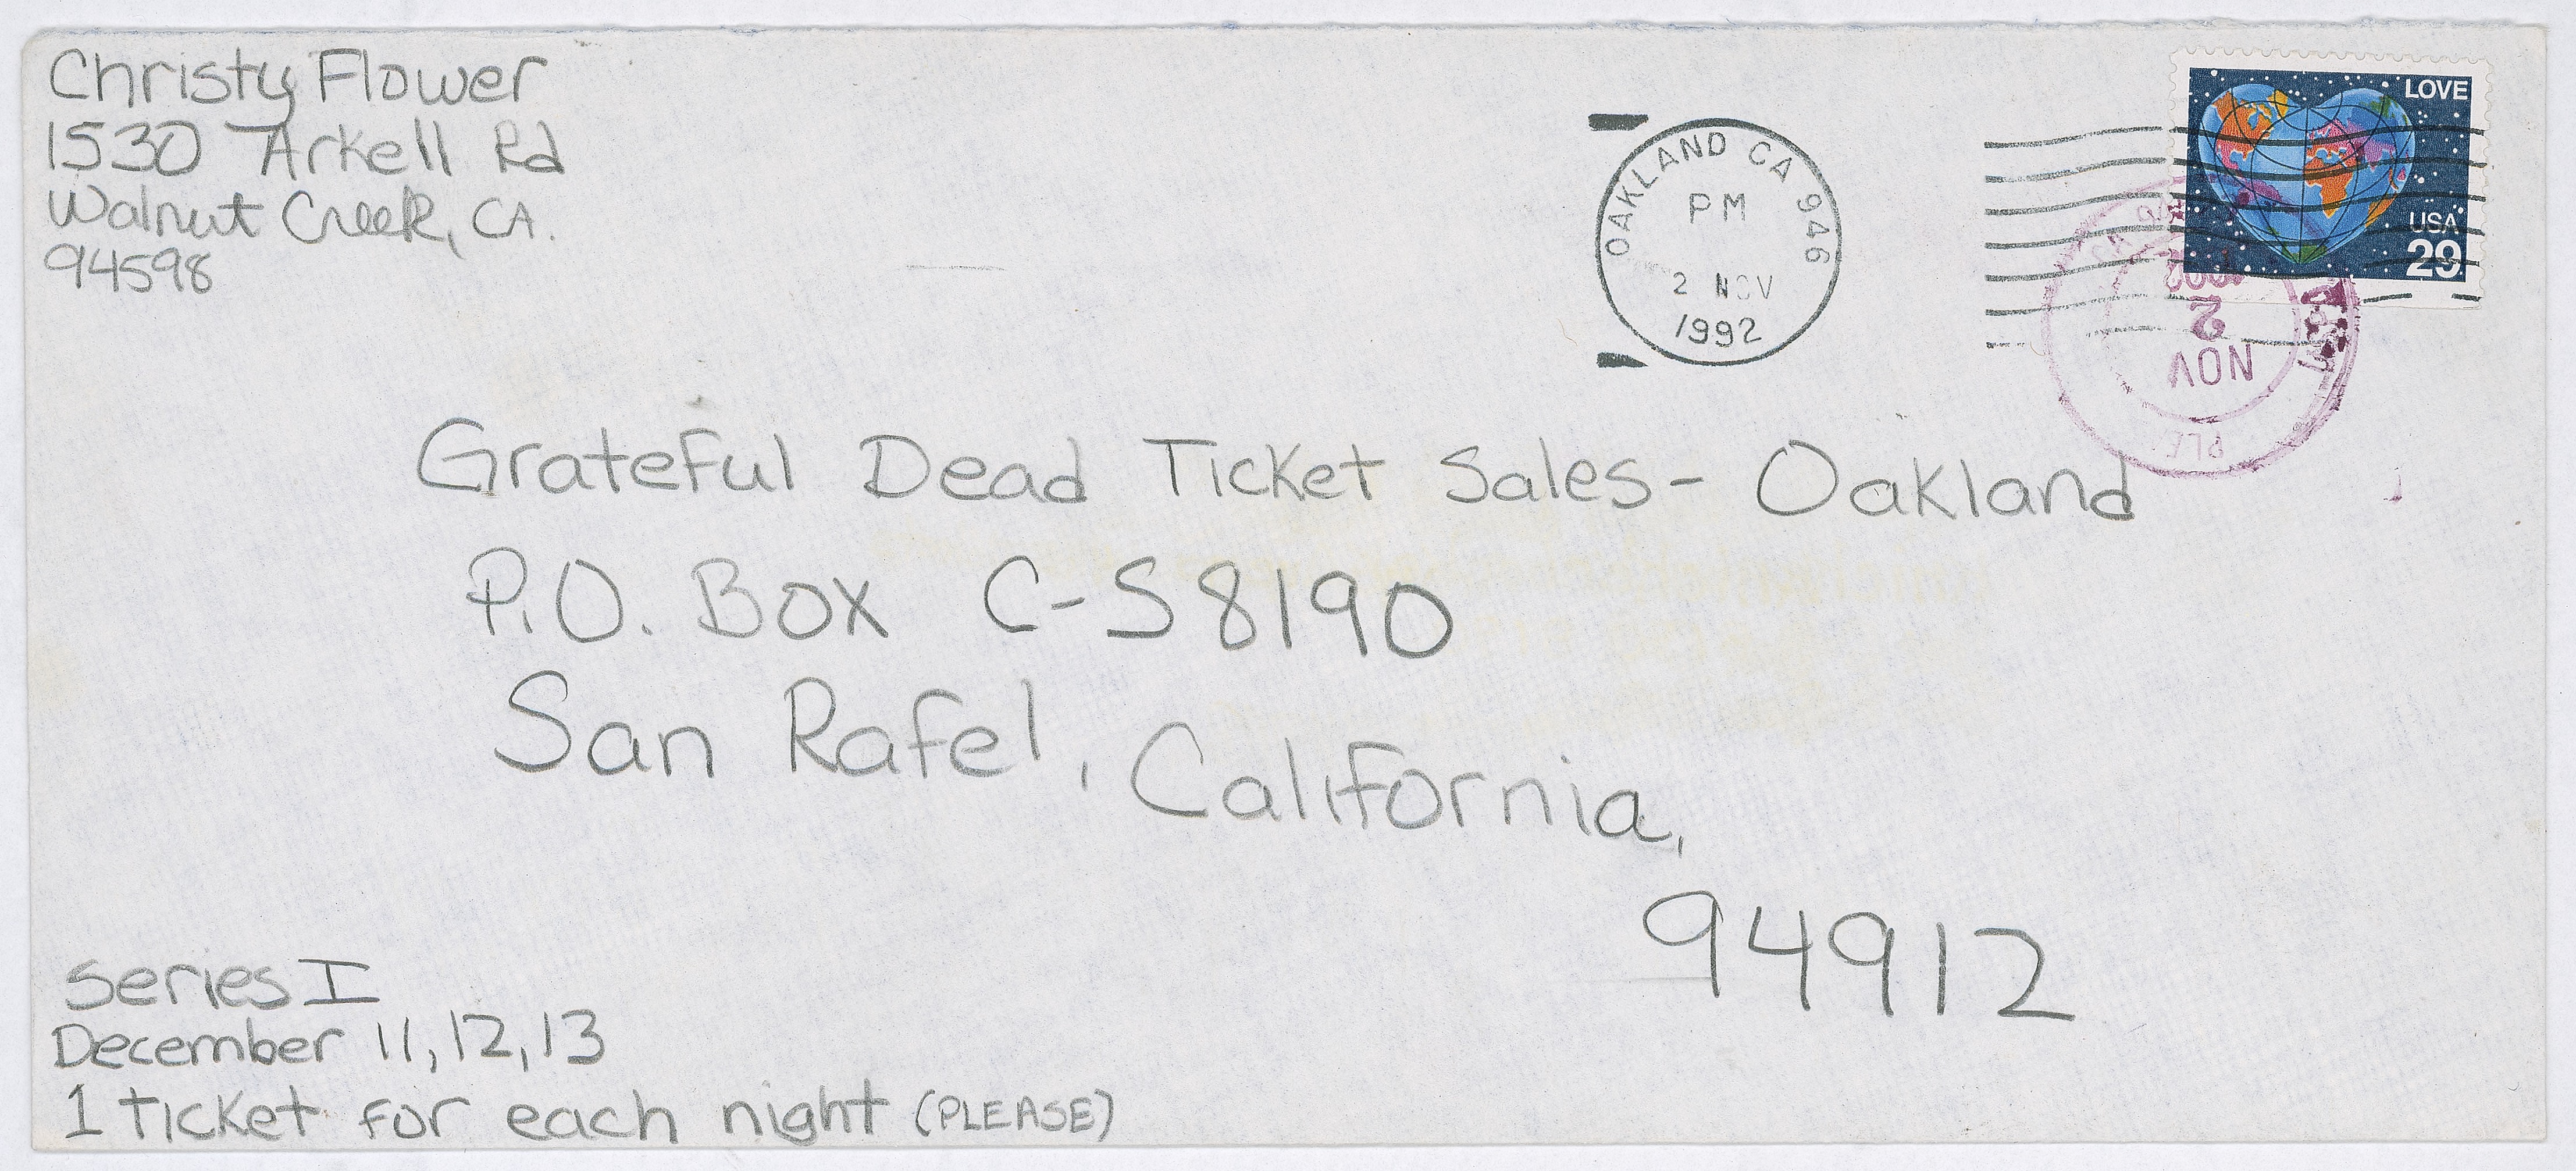 Christy Flower
1530 Arkell Rd
Walnut Creek, CA.
94598
OAKLAND CA 946
PM
2 NOV
1992
LOVE
USA
29
2
NOV
Grateful Dead Ticket Sales- Oakland
P.O. Box C-S8190
San Rafel, California,
94912
Series I
December 11, 12, 13
1 ticket for each night (PLEASE)